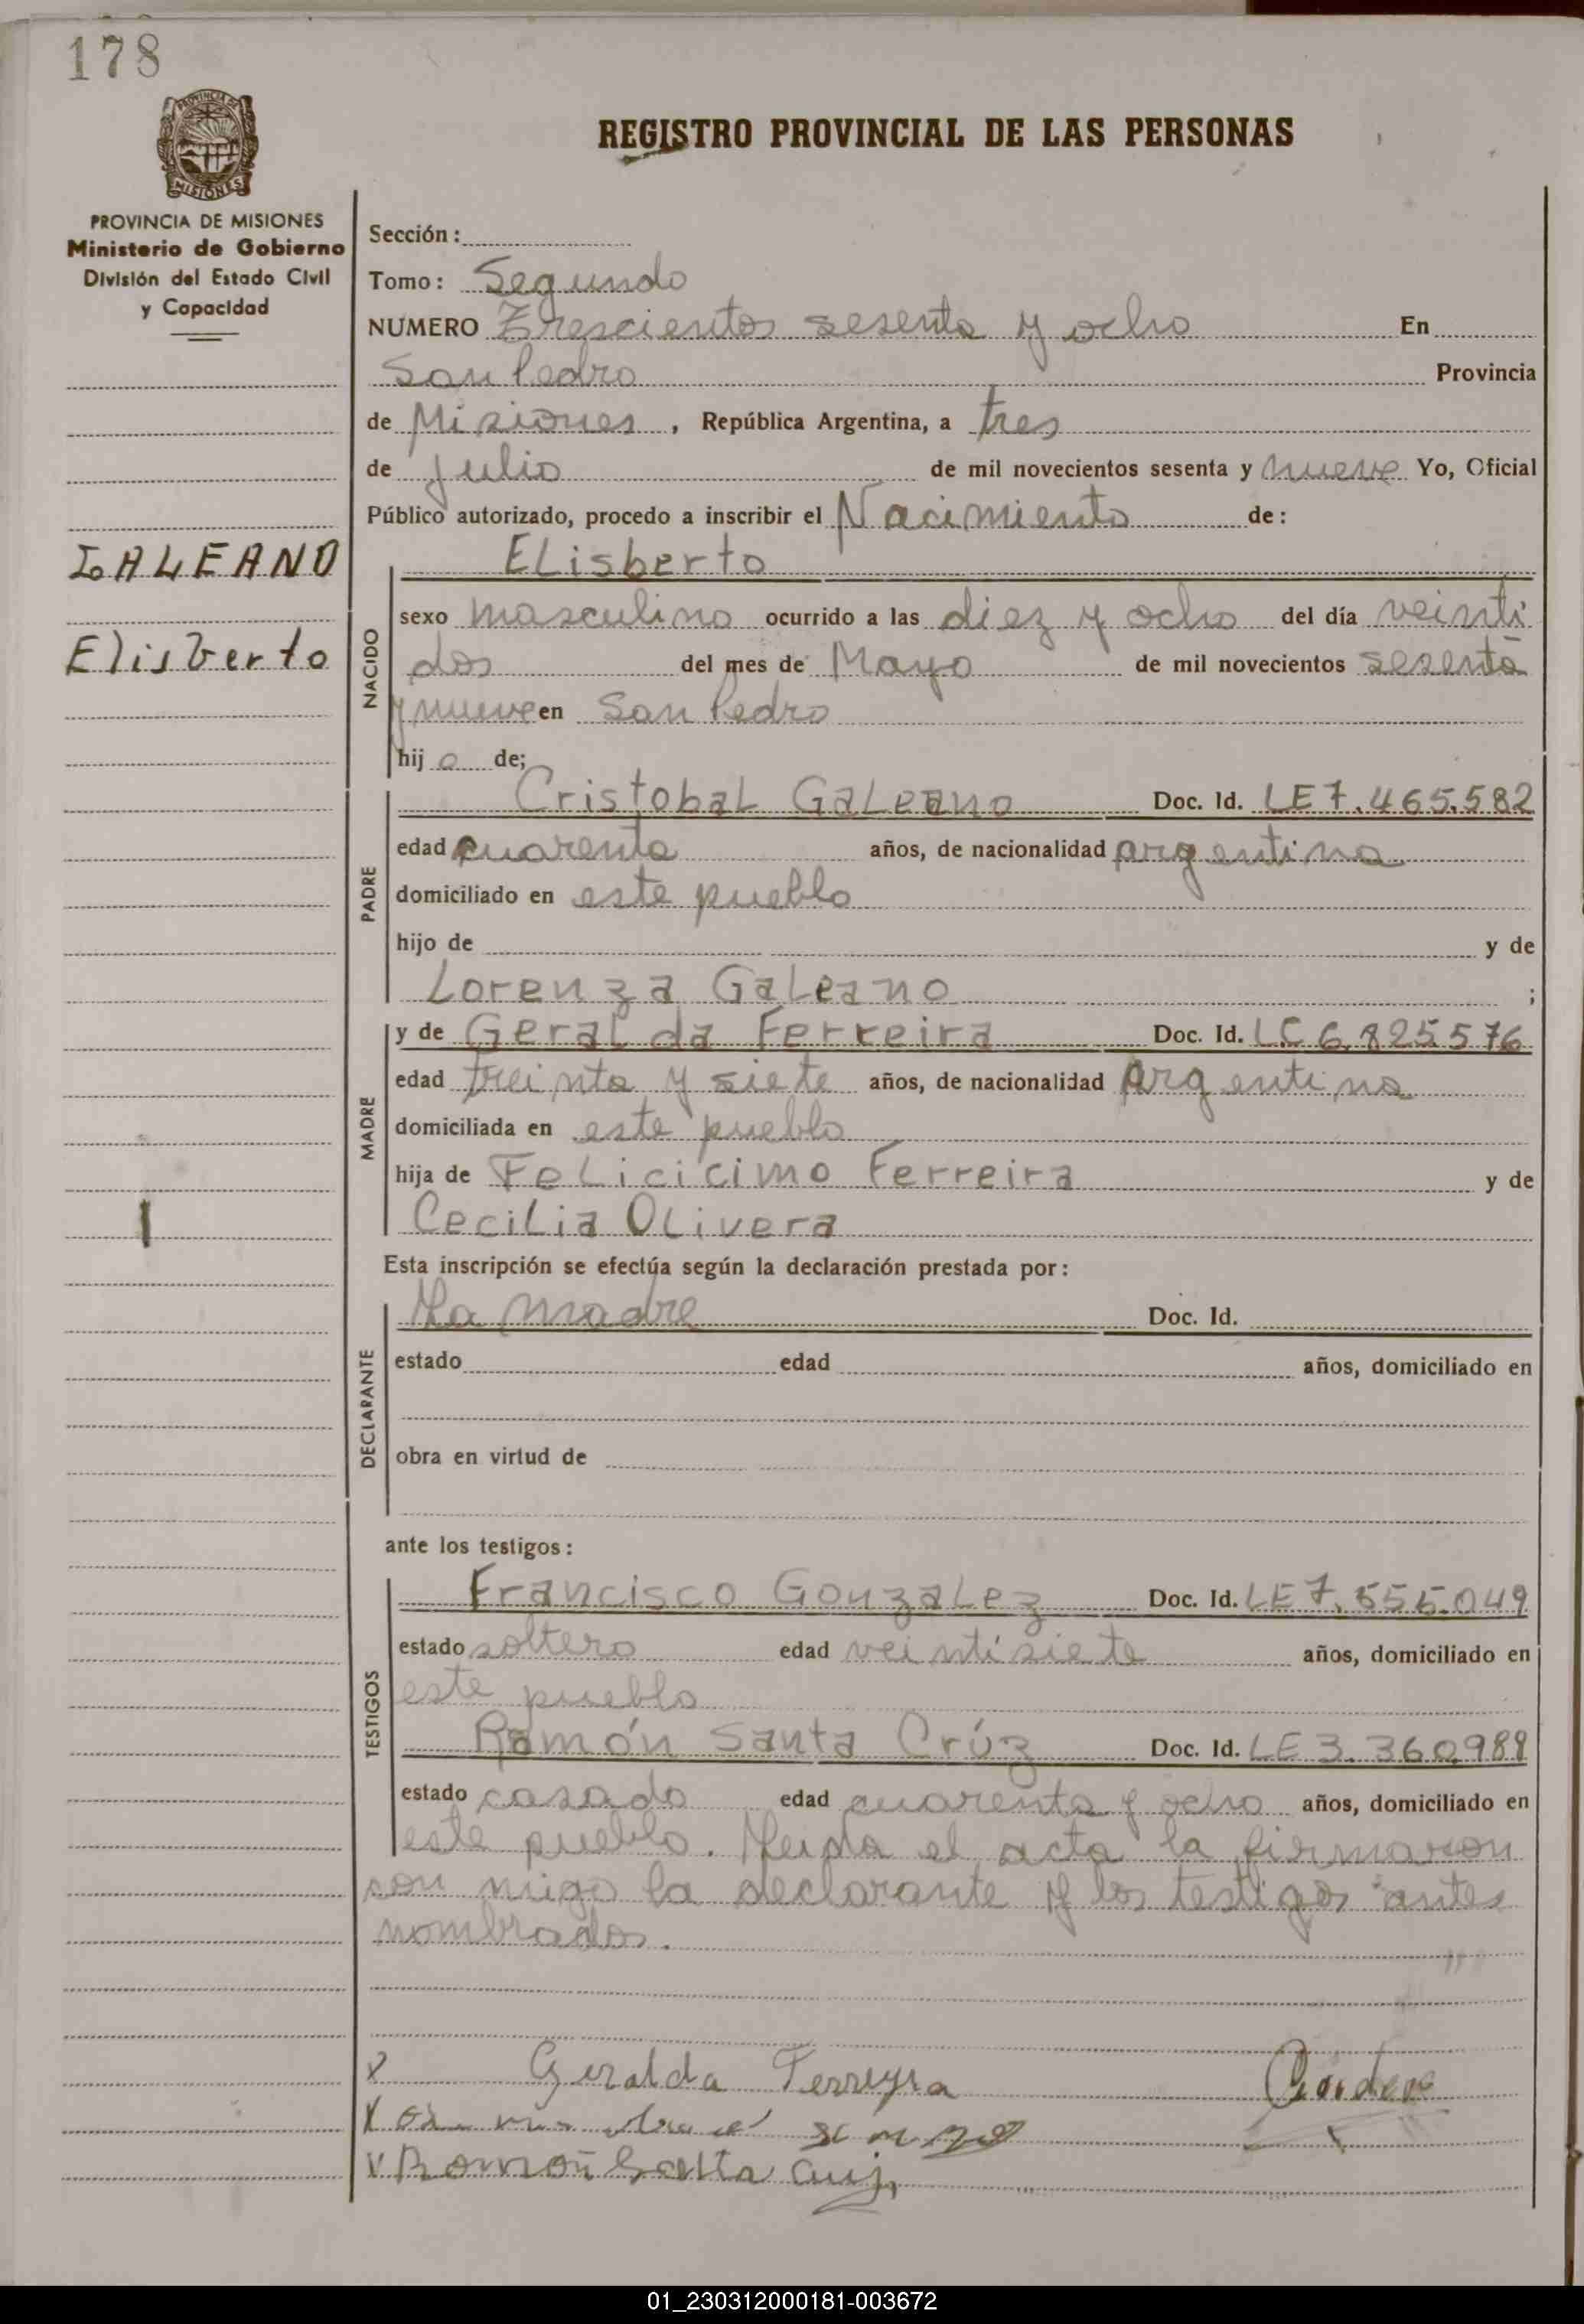 178
PROVINCIA DE
MISIONES
REGISTRO PROVINCIAL DE LAS PERSONAS
PROVINCIA DE MISIONES
Ministerio de Gobierno
División del Estado Civil
y Capacidad
GALEANO
Elisberto
Sección:
Tomo: Segundo
NUMERO Trescientos sesenta y ocho En
San Pedro Provincia
de Misiones, República Argentina, a tres
de Julio de mil novecientos sesenta y nueve Yo, Oficial
Público autorizado, procedo a inscribir el Nacimiento de:
NACIDO
ELisberto
sexo masculino ocurrido a las diez y ocho del día veinti
dos del mes de Mayo de mil novecientos sesenta
y nueve en San Pedro
hijo de;
PADRE
Cristobal Galeano Doc. Id. LE 7.465.582
edad cuarenta años, de nacionalidad argentina
domiciliado en este pueblo
hijo de y de
Lorenza Galeano ;
MADRE
y de Geralda Ferreira Doc. Id. LC 6.825576
edad treinta y siete años, de nacionalidad argentina
domiciliada en este pueblo
hija de Felicicimo Ferreira y de
Cecilia Olivera
Esta inscripción se efectúa según la declaración prestada por:
DECLARANTE
La madre Doc. Id.
estado edad años, domiciliado en
obra en virtud de
ante los testigos:
TESTIGOS
Francisco Gonzalez Doc. Id. LE 7.555.049
estado soltero edad veintisiete años, domiciliado en
este pueblo
Ramón Santa Crúz Doc. Id. LE 3.360.989
estado casado edad cuarenta y ocho años, domiciliado en
este pueblo. Leida el acta la firmaron
con migo la declarante y los testigos antes
nombrados.
x Geralda Ferreyra
x
x Ramon Santa Cruz
01_230312000181-003672